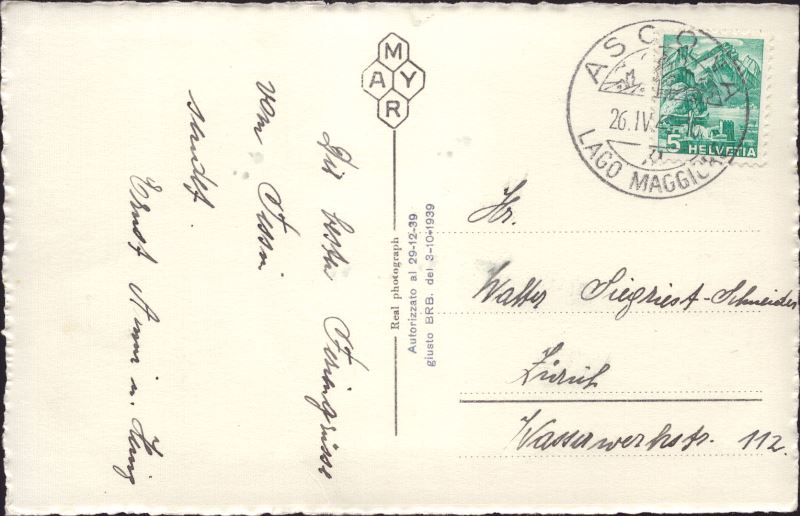 MAYR
ASCONA
26.IV.
LAGO MAGGIORE
5 HELVETIA
Real photograph
Autorizzato al 29-12-39
giusto BRB. del 3-10-1939
Hr.
Walter Siegriest-Schneider
Zürich
Wasserwerkstr. 112.
Die besten Feriengrüsse
vom Tessin
sendet
Ernst Anni u.